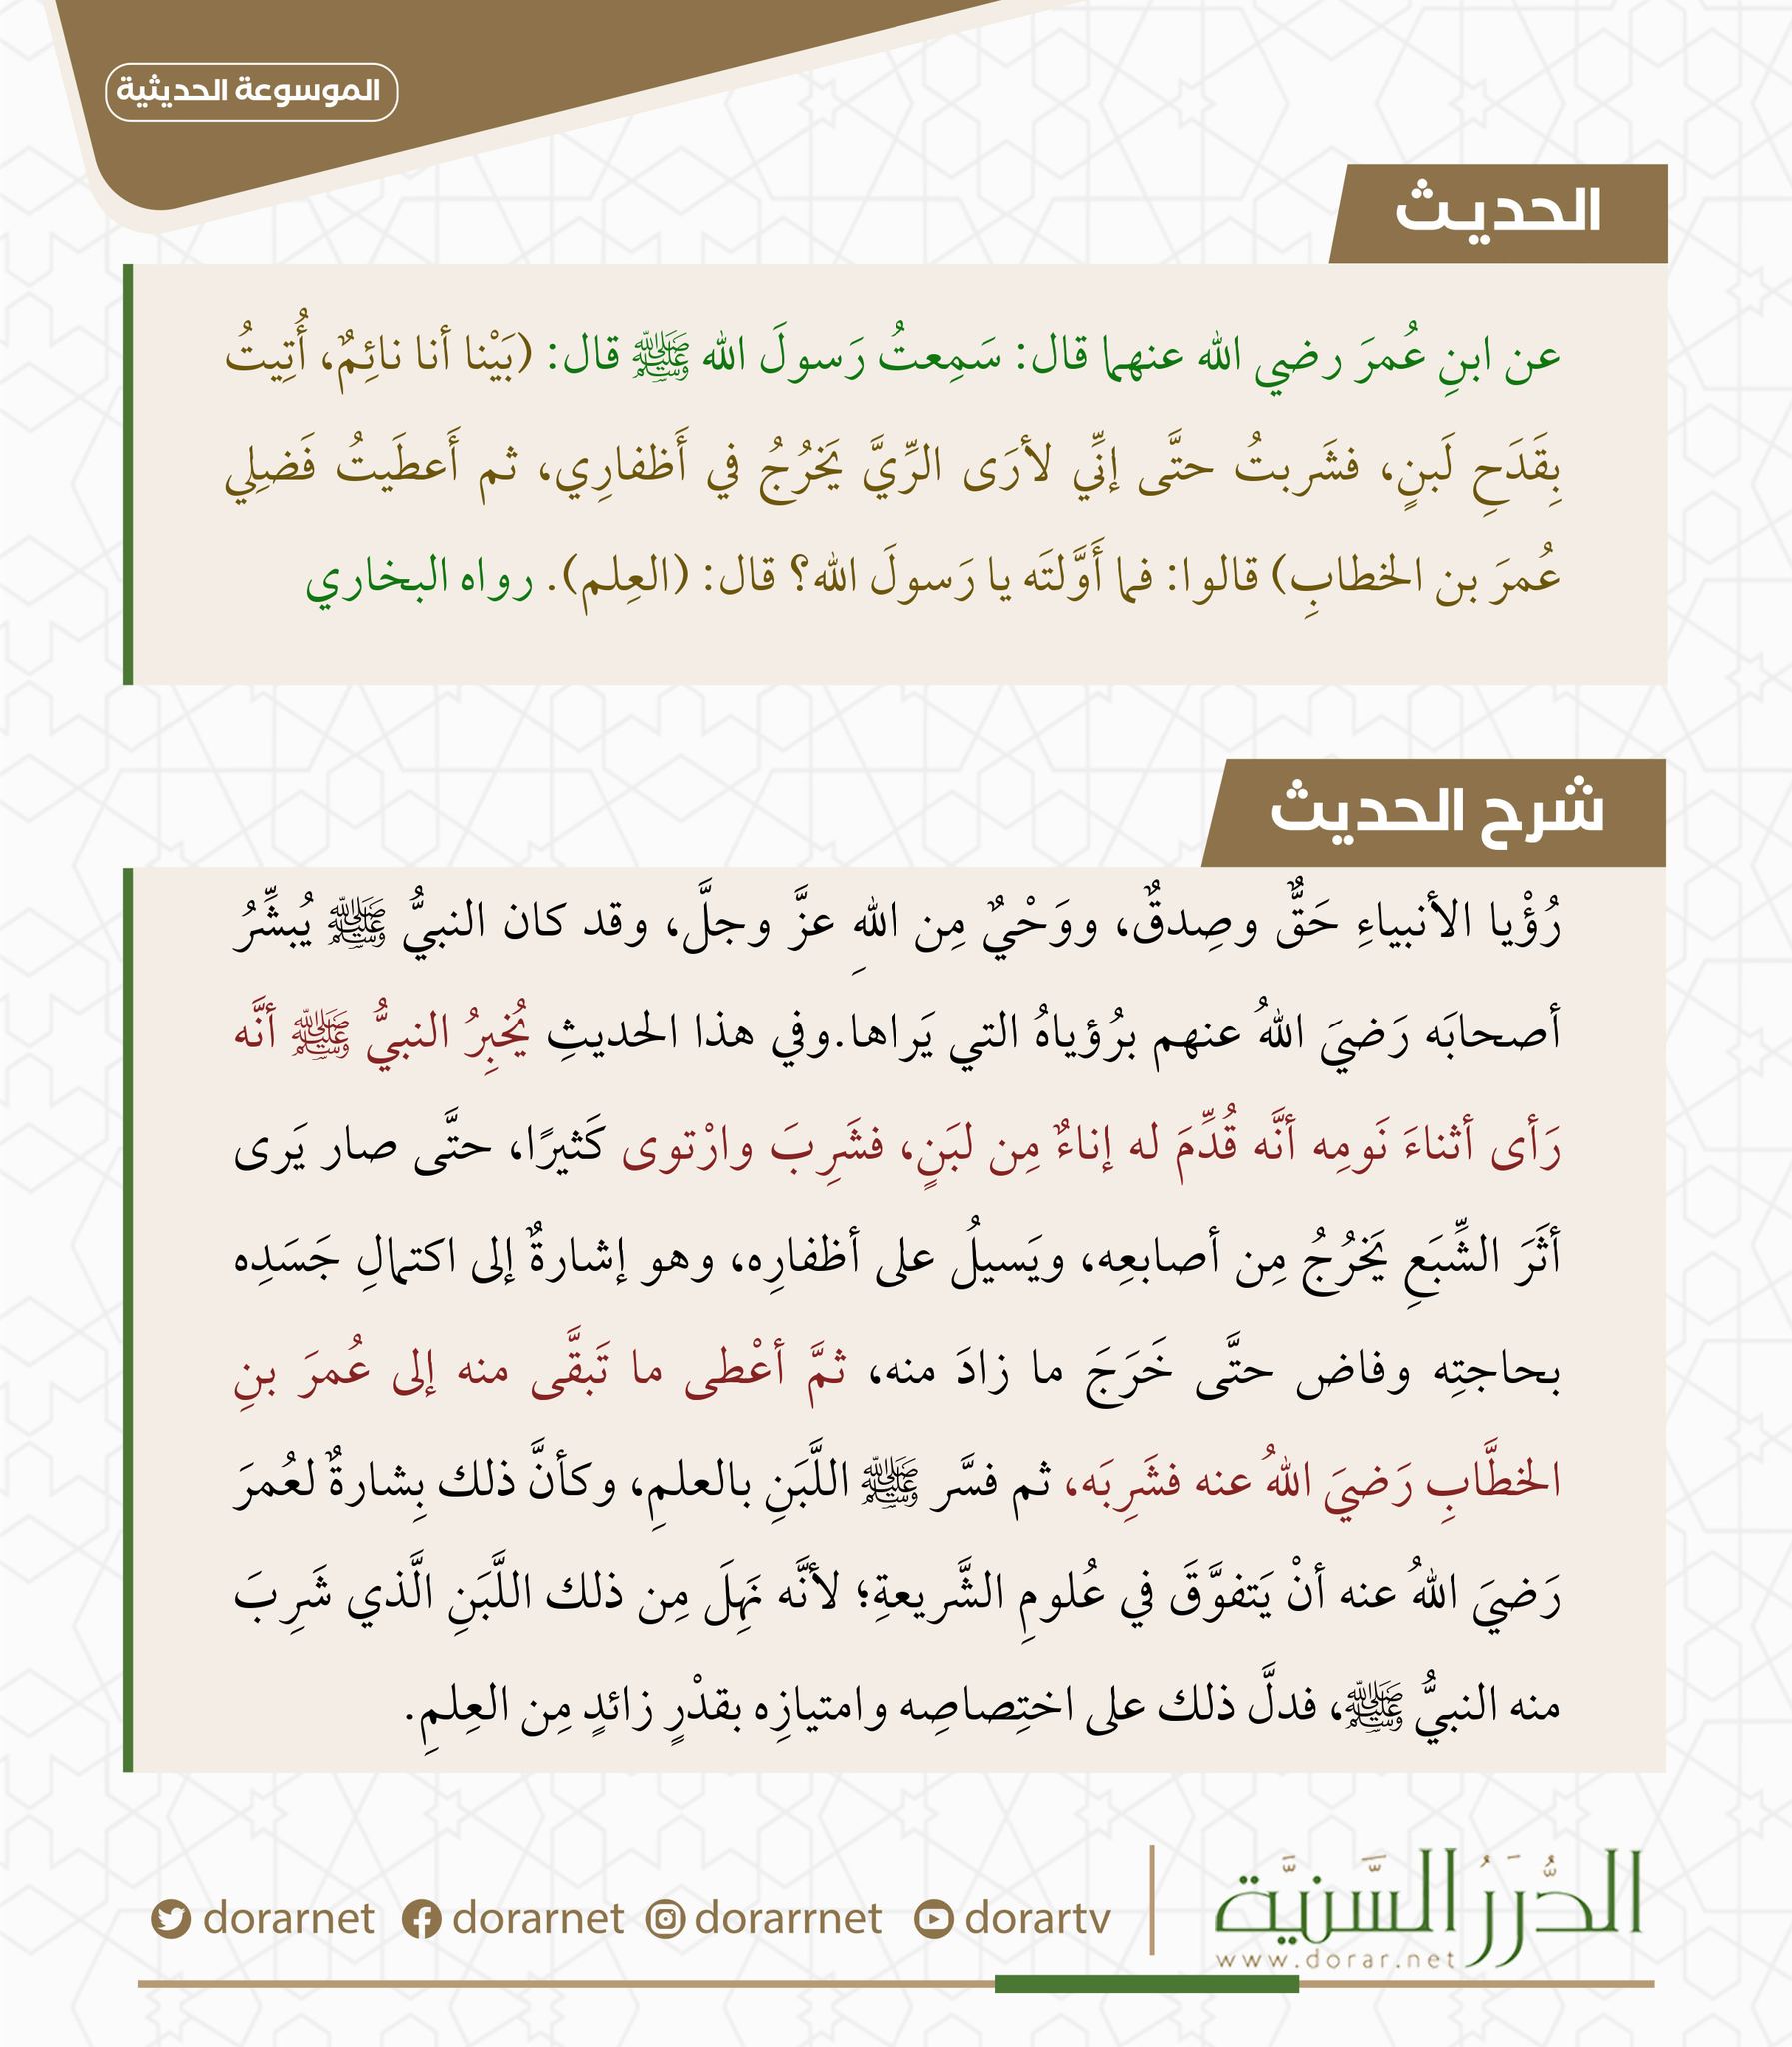 الموسوعة الحديثية
الحديث
عن ابنِ عُمرَ رضي الله عنهما قال: سَمِعتُ رَسولَ الله ﷺ قال: (بَيْنا أنا نائِمٌ، أُتِيتُ
بِقَدَحِ لَبنٍ، فشَربتُ حتَّى إنِّي لأرَى الرِّيَّ يَخرُجُ في أَظفارِي، ثم أَعطَيتُ فَضلِي
عُمرَ بن الخطابِ) قالوا: فما أَوَّلتَه يا رَسولَ الله؟ قال: (العِلم). رواه البخاري
شرح الحديث
رُؤْيا الأنبياءِ حَقٌّ وصِدقٌ، ووَحْيٌ مِن اللهِ عزَّ وجلَّ، وقد كان النبيُّ ﷺ يُبشِّرُ
أصحابَه رَضيَ اللهُ عنهم برُؤياهُ التي يَراها.وفي هذا الحديثِ يُخبِرُ النبيُّ ﷺ أنَّه
رَأى أثناءَ نَومِه أنَّه قُدِّمَ له إناءٌ مِن لبَنٍ، فشَرِبَ وارْتوى كَثيرًا، حتَّى صار يَرى
أثَرَ الشِّبَعِ يَخرُجُ مِن أصابعِه، ويَسيلُ على أظفارِه، وهو إشارةٌ إلى اكتمالِ جَسَدِه
بحاجتِه وفاض حتَّى خَرَجَ ما زادَ منه، ثمَّ أعْطى ما تَبقَّى منه إلى عُمرَ بنِ
الخطَّابِ رَضيَ اللهُ عنه فشَرِبَه، ثم فسَّر ﷺ اللَّبَنِ بالعلمِ، وكأنَّ ذلك بِشارةٌ لعُمرَ
رَضيَ اللهُ عنه أنْ يَتفوَّقَ في عُلومِ الشَّريعةِ؛ لأنَّه نَهِلَ مِن ذلك اللَّبَنِ الَّذي شَرِبَ
منه النبيُّ ﷺ، فدلَّ ذلك على اختِصاصِه وامتيازِه بقدْرٍ زائدٍ مِن العِلمِ.
الدُّرَرُ السَّنيَّة
www.dorar.net
dorarnet dorarnet dorarrnet dorartv